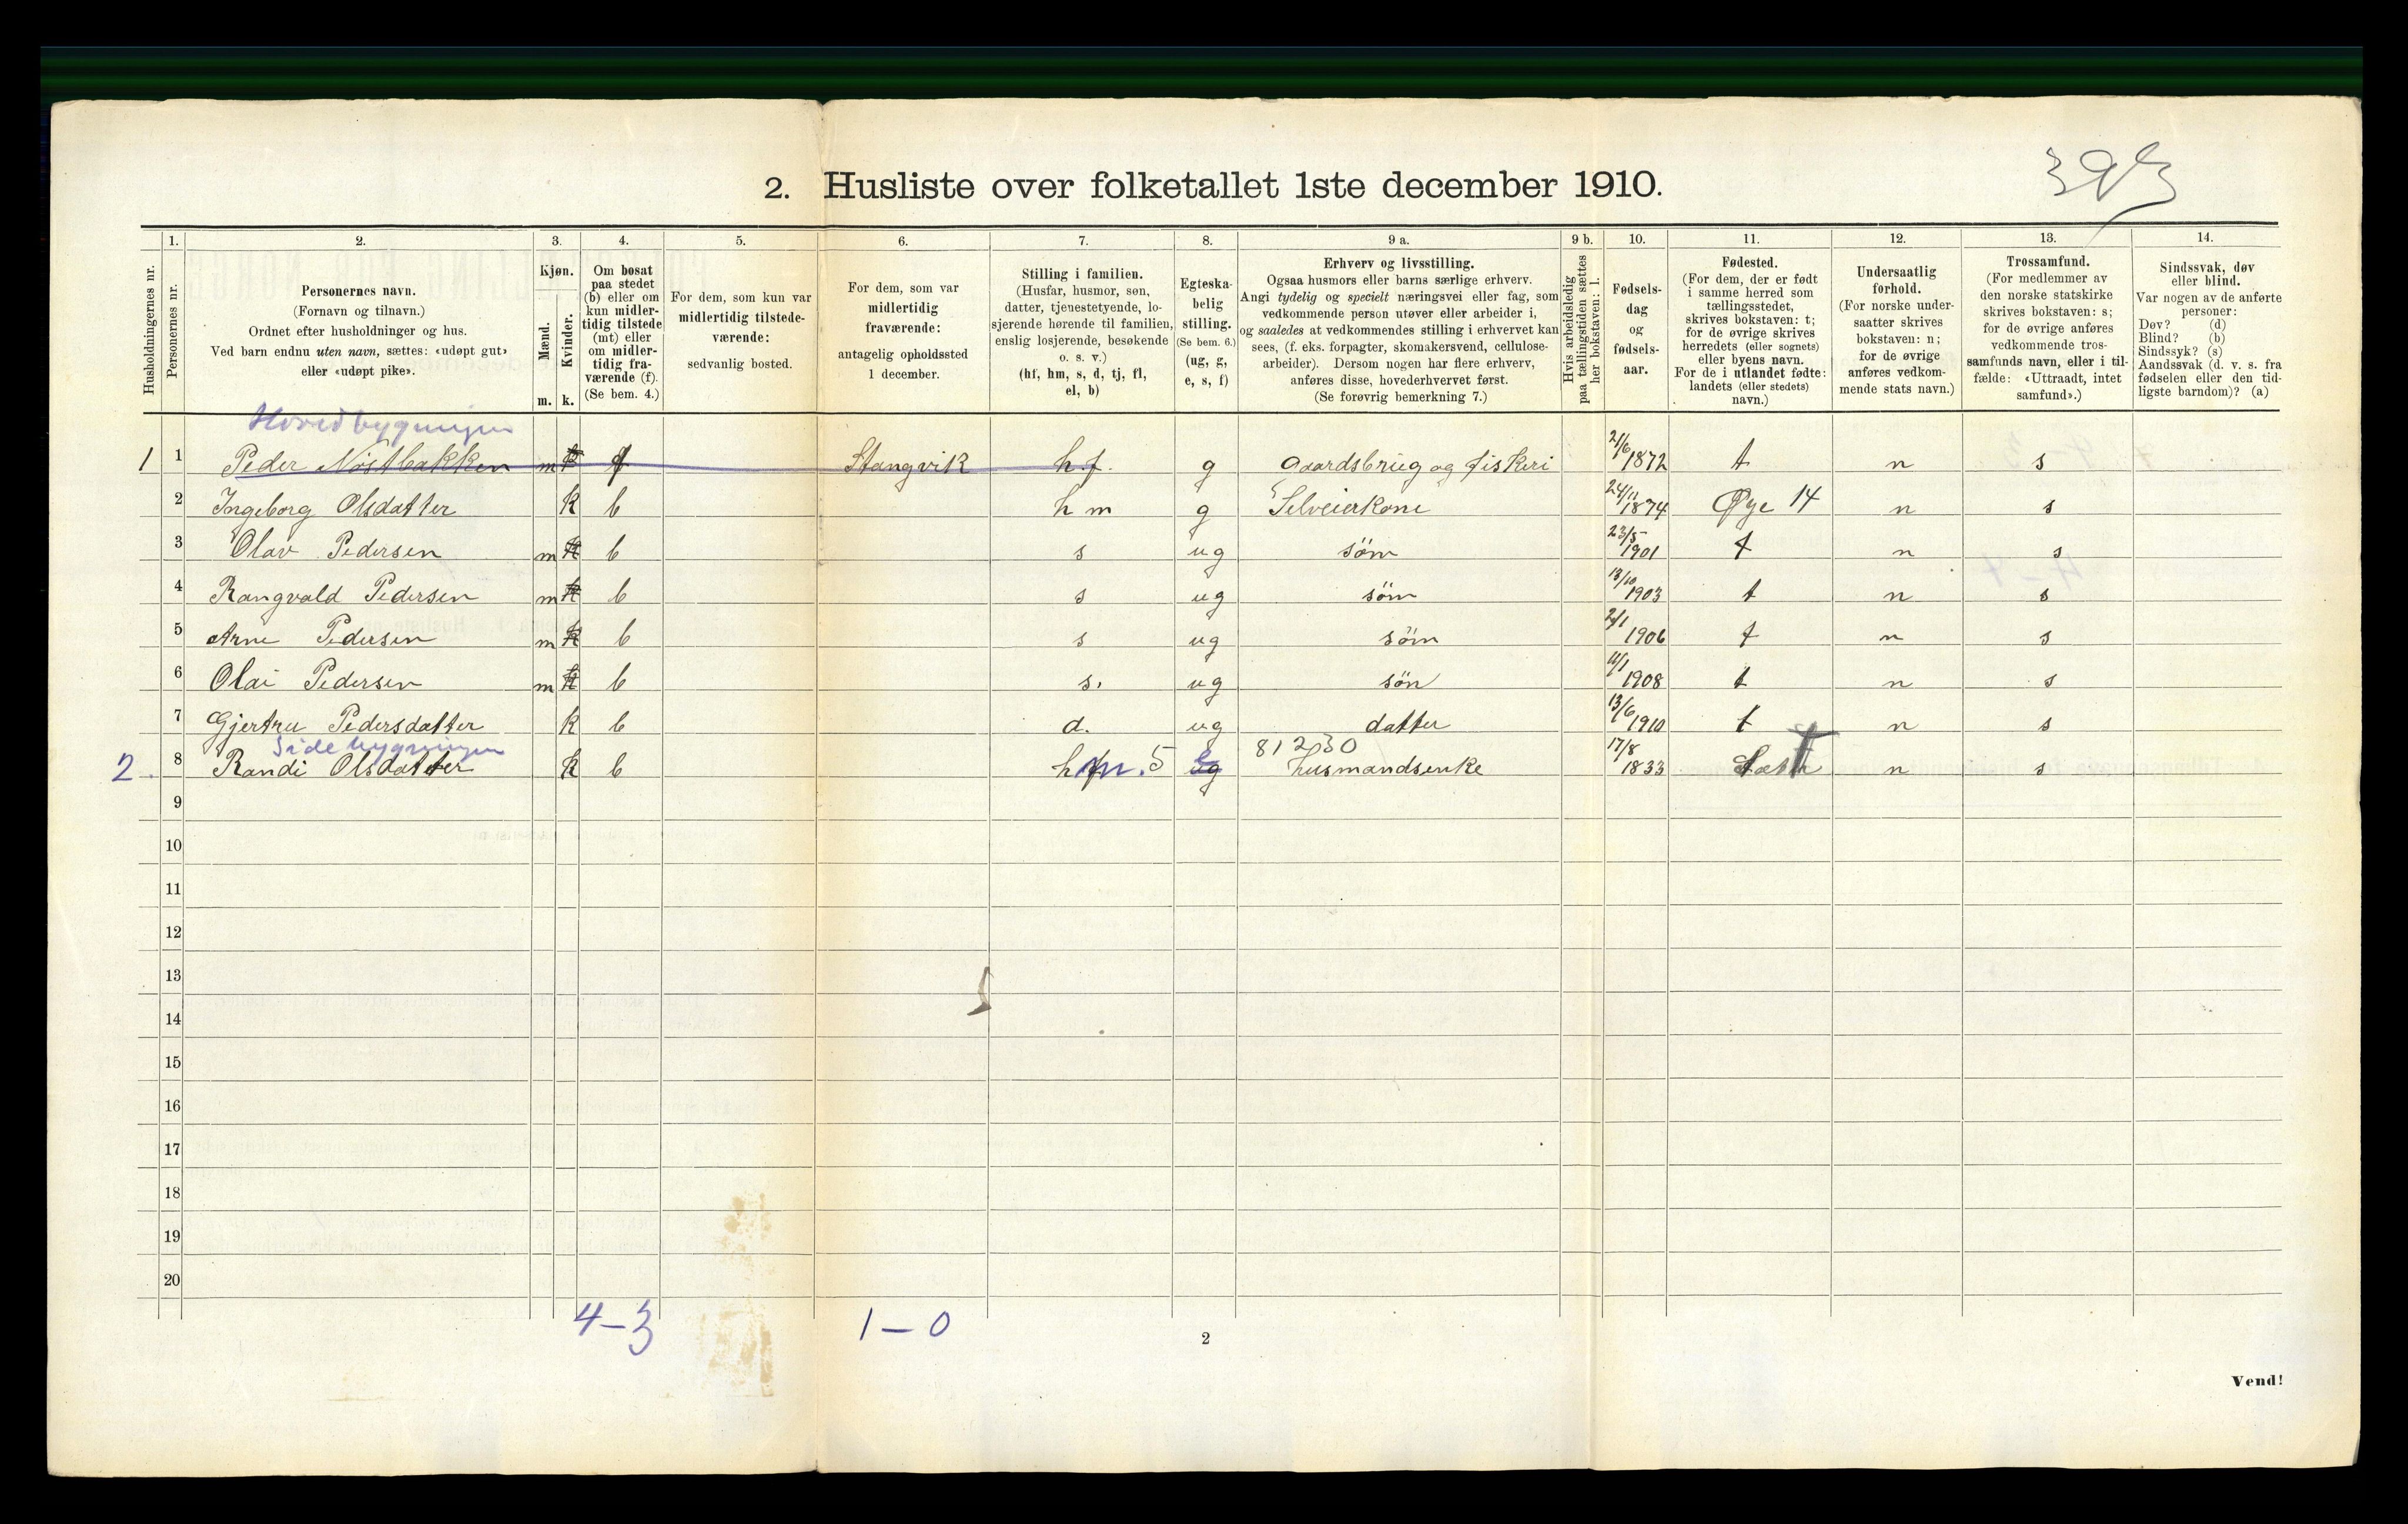 2. Husliste over folketallet 1ste december 1910.
Husholdningernes nr.
1.
Personernes nr.
2.
Personernes navn.
(Fornavn og tilnavn.)
Ordnet efter husholdninger og hus.
Ved barn endnu uten navn, sættes: «udøpt gut»
eller «udøpt pike».
3.
Kjøn.
Mænd.
Kvinder.
m. k.
4.
Om bosat
paa stedet
(b) eller om
kun midler-
tidig tilstede
(mt) eller
om midler-
tidig fra-
værende (f).
(Se bem. 4.)
5.
For dem, som kun var
midlertidig tilstede-
værende:
sedvanlig bosted.
6.
For dem, som var
midlertidig
fraværende:
antagelig opholdssted
1 december.
7.
Stilling i familien.
(Husfar, husmor, søn,
datter, tjenestetyende, lo-
sjerende hørende til familien,
enslig losjerende, besøkende
o. s. v.)
(hf, hm, s, d, tj, fl,
el, b)
8.
Egteska-
belig
stilling.
(Se bem. 6.)
(ug, g,
e, s, f)
9 a.
Erhverv og livsstilling.
Ogsaa husmors eller barns særlige erhverv.
Angi tydelig og specielt næringsvei eller fag, som
vedkommende person utøver eller arbeider i,
og saaledes at vedkommendes stilling i erhvervet kan
sees, (f. eks. forpagter, skomakersvend, cellulose-
arbeider). Dersom nogen har flere erhverv,
anføres disse, hovederhvervet først.
(Se forøvrig bemerkning 7.)
9 b.
Hvis arbeidsledig
paa tællingstiden sættes
her bokstaven: l.
10.
Fødsels-
dag
og
fødsels-
aar.
11.
Fødested.
(For dem, der er født
i samme herred som
tællingsstedet,
skrives bokstaven: t;
for de øvrige skrives
herredets (eller sognets)
eller byens navn.
For de i utlandet fødte:
landets (eller stedets)
navn.)
12.
Undersaatlig
forhold.
(For norske under-
saatter skrives
bokstaven: n;
for de øvrige
anføres vedkom-
mende stats navn.)
13.
Trossamfund.
(For medlemmer av
den norske statskirke
skrives bokstaven: s;
for de øvrige anføres
vedkommende tros-
samfunds navn, eller i til-
fælde: «Uttraadt, intet
samfund».)
14.
Sindssvak, døv
eller blind.
Var nogen av de anførte
personer:
Døv? (d)
Blind? (b)
Sindssyk? (s)
Aandssvak (d. v. s. fra
fødselen eller den tid-
ligste barndom)? (a)
Hovedbygningen
1 1 Peder Nøstbakken m k f Stangvik hf. g Gaardsbrug og fiskeri 21/6 1872 t n s
2 Ingeborg Olsdatter k b hm g Selveierkone 24/11 1874 Øye 14 n s
3 Olav Pedersen m k b s ug søn 23/5 1901 t n s
4 Rangvald Pedersen m k b s ug søn 13/10 1903 t n s
5 Arne Pedersen m k b s ug søn 1906 t n s
6 Olai Pedersen m k b s. ug søn 11/1 1908 t n s
7 Gjertru Pedersdatter k b d. ug datter 13/6 1910 t n s
Sidebygningen
81230
2. 8 Randi Olsdatter k b hm. 5 ug e husmandsenke 17/8 1833 t n s
9
10
11
12
13
14
15
16
17
18
19
20
4-3 1-0
2
Vend!